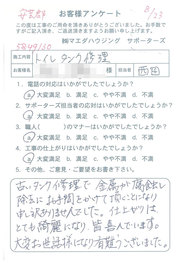 お客様アンケート
この度は工事のご用命を頂きありがとうございました。お手数で
すがご記入頂き、ご返信頂けますようお願いします。
㈱マエダハウジング サポーターズ
施工内容 トイレタンク修理
お客様名 様 担当者 西田
1. 電話の対応はいかがでしたでしょうか?
大変満足 満足 普通 やや不満 不満
2. サポーターズ担当者の応対はいかがでしたでしょうか?
大変満足 満足 普通 やや不満 不満
3. 職人( )のマナーはいかがでしたでしょうか?
大変満足 満足 普通 やや不満 不満
4. 工事の仕上がりはいかがでしたでしょうか?
大変満足 満足 普通 やや不満 不満
5. その他、ご意見・ご要望をお書き下さい。
古いタンク修理で金属が腐食し
除去にお時間とかけて頂くことになり
申し訳ありませんでした。仕上がりは
とても綺麗になり皆喜んでいます。
大変お世話様になり有難うございました。